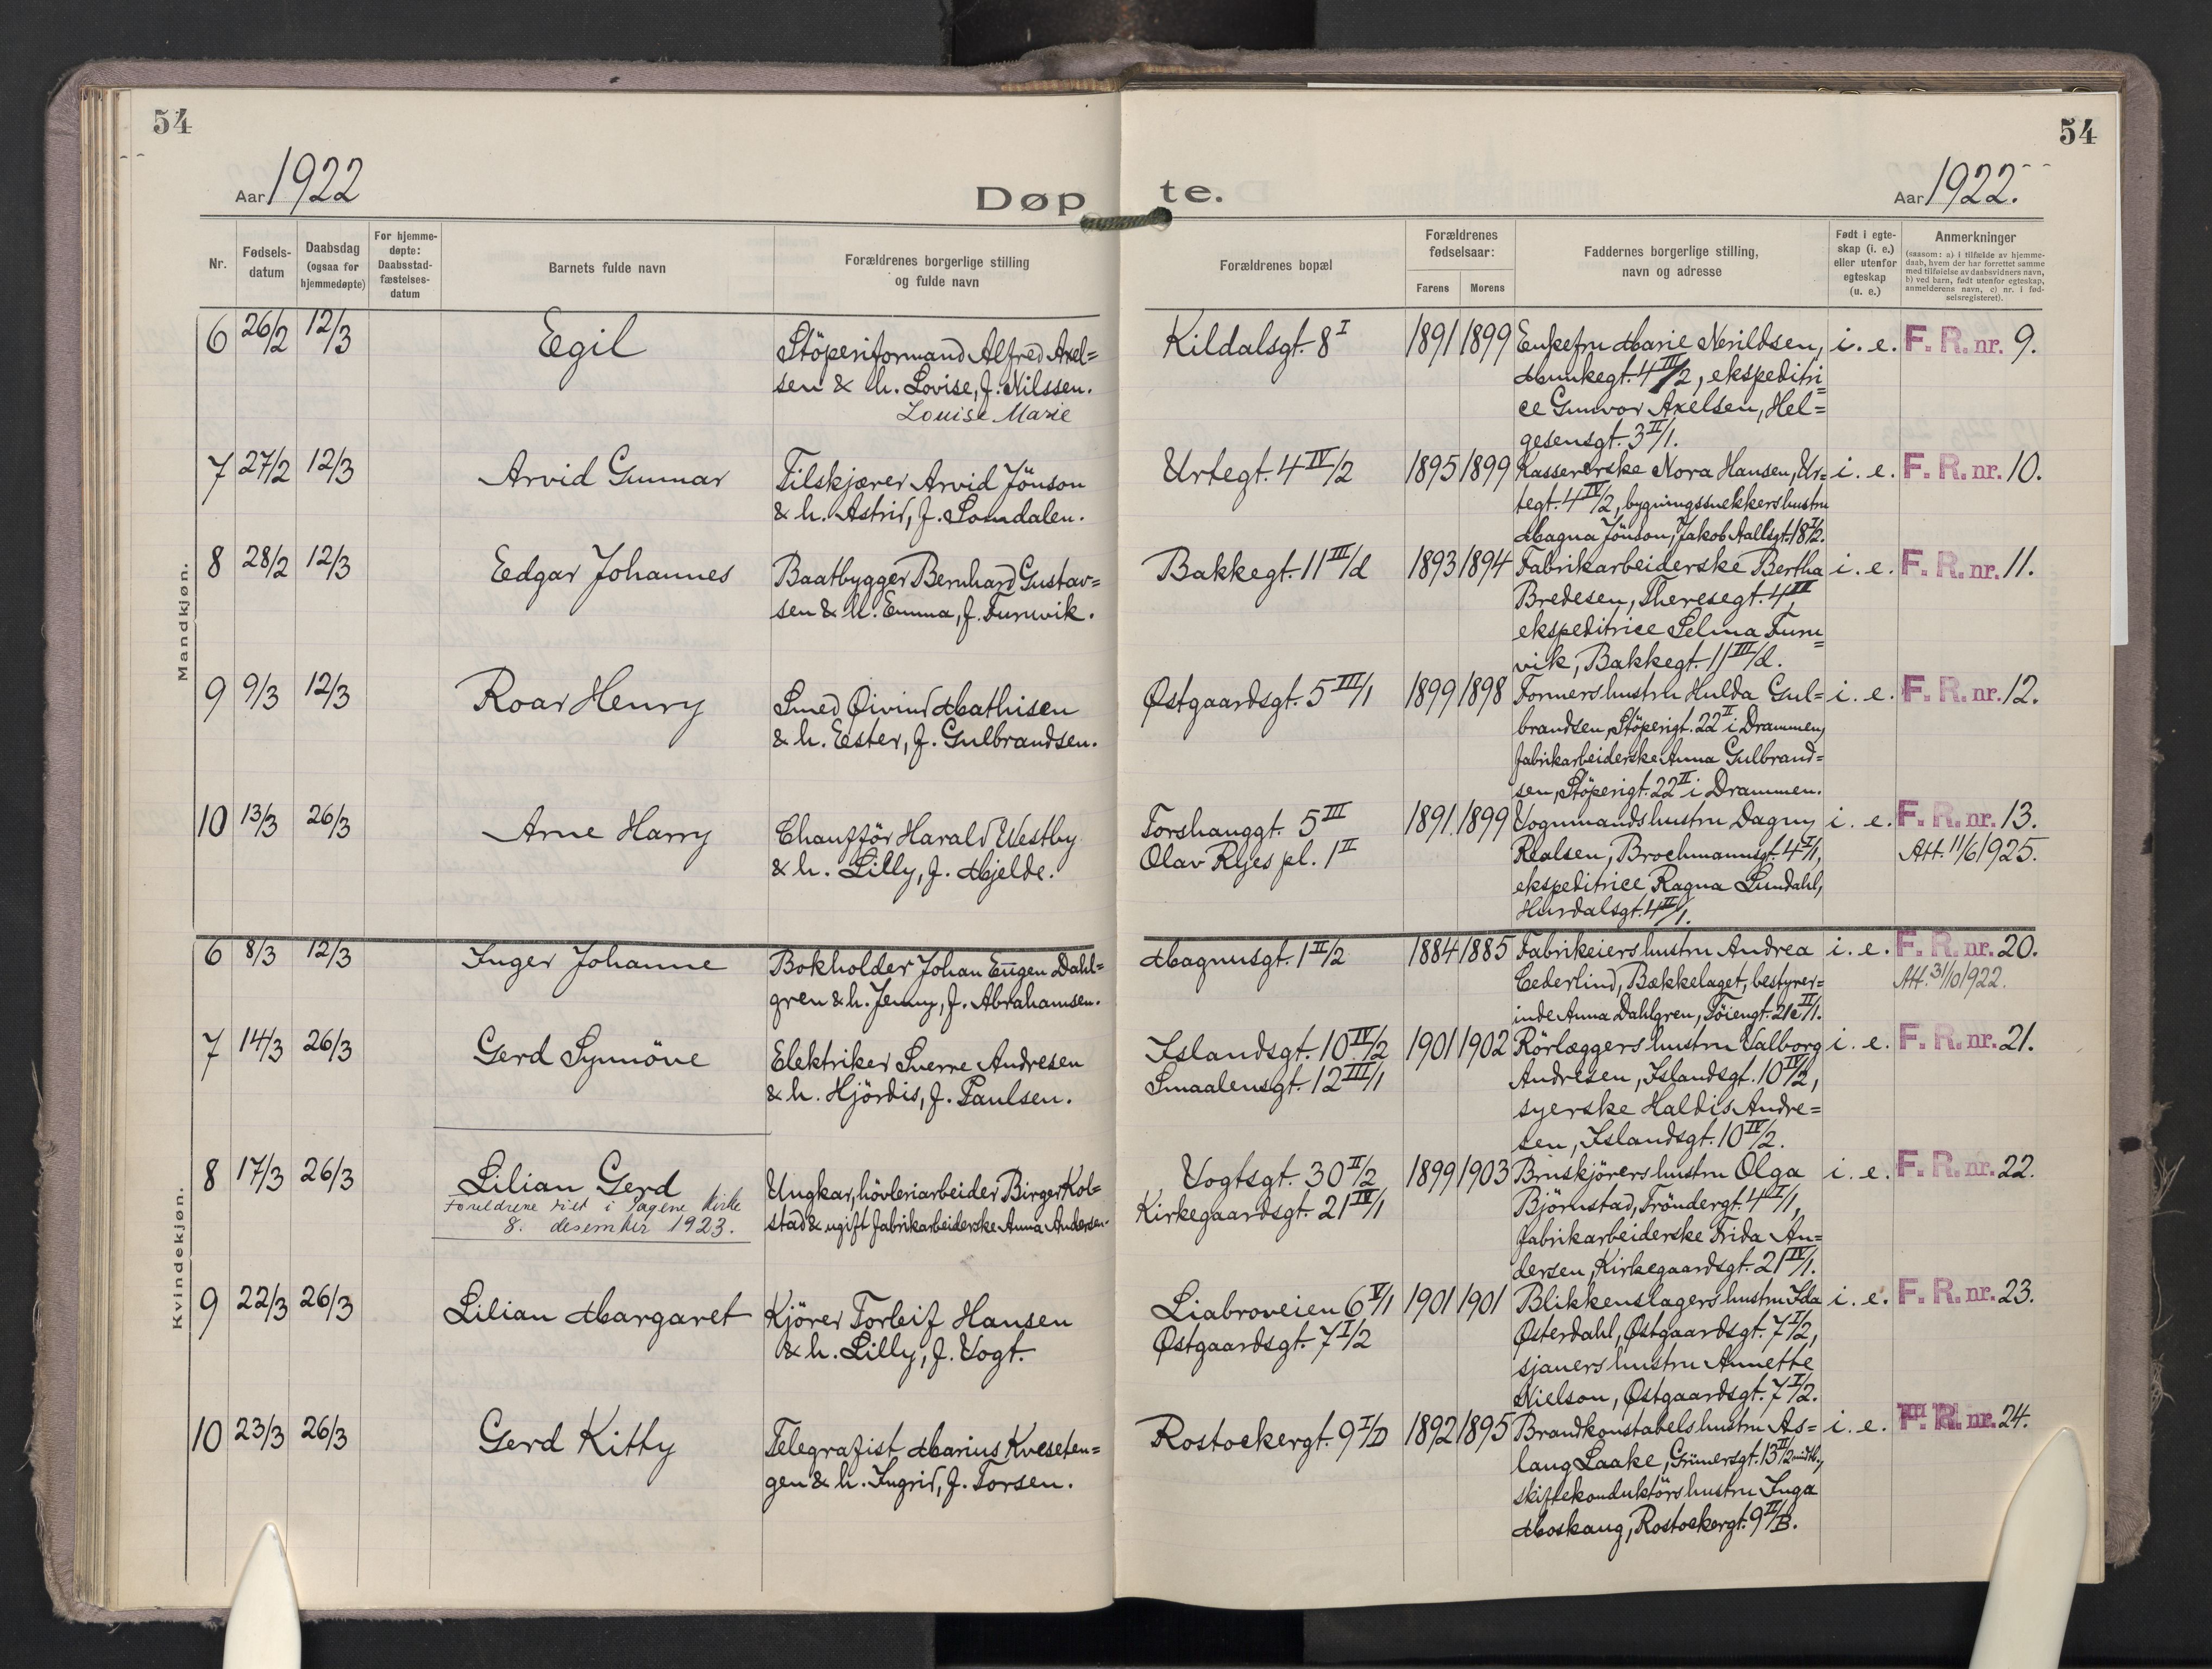 54
54
Aar 1922
Døpte.
Aar 1922.
Nr.
Fødselsdatum
Daabsdag (ogsaa for hjemmedøpte)
For hjemmedøpte: Daabsstadfæstelsesdatum
Barnets fulde navn
Forældrenes borgerlige stilling og fulde navn
Forældrenes bopæl
Forældrenes fødselsaar:
Farens
Morens
Faddernes borgerlige stilling, navn og adresse
Født i egteskap (i. e.) eller utenfor egteskap (u. e.)
Anmerkninger
(saasom: a) i tilfælde av hjemmedaab, hvem der har forrettet samme med tilføielse av daabsvidners navn, b) ved barn, født utenfor egteskap, anmelderens navn, c) nr. i fødselsregisteret).
Mandkjøn.
6 26/2 12/3 Egil
Stöperiformand Alfred Axel=
sen & h. Lovise, f. Nilssen.
Louise Marie
Kildalsgt. 8 I
1891 1899
Enkefru Marie Nerildsen,
Munkegt. 4 III/2, ekspeditri=
ce Gunvor Axelsen, Hel=
gesensgt. 3 II/1.
i. e. F. R. nr. 9.
7 27/2 12/3 Arvid Gunnar
Filskjærer Arvid Jönson
& h. Astrid, f. Somdalen.
Urtegt. 4 IV/2
1895 1899
Kassererske Nora Hansen, Ur=
tegt. 4 IV/2, bygningssnekkers hustru
Magna Jönson, Jakob Aallsgt. 18 I/2.
i. e. F. R. nr. 10.
8 28/2 12/3 Edgar Johannes
Baatbygger Bernhard Gustav=
sen & h. Emma, f. Furuvik.
Bakkegt. 11 III/d
1893 1894
Fabrikarbeiderske Bertha
Bredesen, Theresegt. 4 III,
ekspeditrice Selma Furu=
vik, Bakkegt. 11 III/d.
i. e. F. R. nr. 11.
9 9/3 12/3 Roar Henry
Smed Øivind Mathisen
& h. Ester, f. Gulbrandsen.
Østgaardsgt. 5 III/1
1899 1898
Formers hustru Hulda Gul=
brandsen, Stöperigt. 22 II i Drammen,
fabrikarbeiderske Anna Gulbrand=
sen, Stöperigt. 22 II i Drammen.
i. e. F. R. nr. 12.
10 13/3 26/3 Arne Harry
Chaufför Harald Westby
& h. Lilly, f. Mjelde.
Torshauggt. 5 III
Olav Ryes pl. 1 II
1891. 1899
Vognmands hustru Dagny
Realsen, Brochmannsgt. 4 I/1,
ekspeditrice Ragna Lundahl,
Hurdalsgt. 4 II/1.
i. e. F. R. nr. 13.
Att. 11/6 1925.
Kvindekjøn.
6 8/3 12/3 Inger Johanne
Bokholder Johan Eugen Dahl=
gren & h. Jenny, f. Abrahamsen.
Magnusgt. 1 II/2
1884 1885
Fabrikeiers hustru Andrea
Cederlind, Bækkelaget, bestyrer=
inde Anna Dahlgren, Töiengt. 21c II/1.
i. e. F. R. nr. 20.
Att. 31/10 1922.
7 14/3 26/3 Gerd Synnöve
Elektriker Sverre Andresen
& h. Hjördis, f. Paulsen.
Islandsgt. 10 IV/2
Smaalensgt. 12 III/1
1901 1902
Rörlæggers hustru Valborg
Andresen, Islandsgt. 10 IV/2,
syerske Haldis Andre=
sen, Islandsgt. 10 IV/2.
i. e. F. R. nr. 21.
8 17/3 26/3 Lilian Gerd
Foreldrene viet i Pagene kirke
8. desember 1923.
Ungkar, hövleriarbeider Birger Kol=
stad & ugift fabrikarbeiderske Anna Andersen.
Vogtsgt. 30 II/2
Kirkegaardsgt. 21 IV/1
1899 1903
Bruskjörers hustru Olga
Björnstad, Tröndergt. 4 I/1,
fabrikarbeiderske Frida An=
dersen, Kirkegaardsgt. 21 IV/1.
i. e. F. R. nr. 22.
9 22/3 26/3 Lilian Margaret
Kjörer Torleif Hansen
& h. Lilly, f. Vogt.
Liabroveien 6 V/1
Østgaardsgt. 7 I/2
1901 1901
Blikkenslagers hustru Ida
Østerdahl, Østgaardsgt. 7 I/2,
sjauers hustru Annette
Nielson, Østgaardsgt. 7 I/2.
i. e. F. R. nr. 23.
10 23/3 26/3 Gerd Kitty
Telegrafist Marius Kveseten=
gen & h. Ingrid, f. Torsen.
Rostockergt. 9 I/D
1892 1895
Brandkonstabels hustru As=
laug Laake, Grünersgt. 13 II/2 midtb.,
skiftekonduktörs hustru Inga
Moskaug, Rostockergt. 9 II/B.
i. e. F. R. nr. 24.